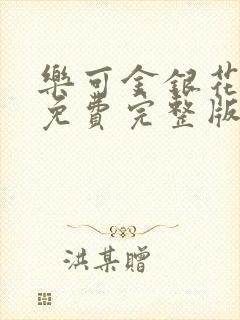 樂可金銀花
免費完整版
洪某贈